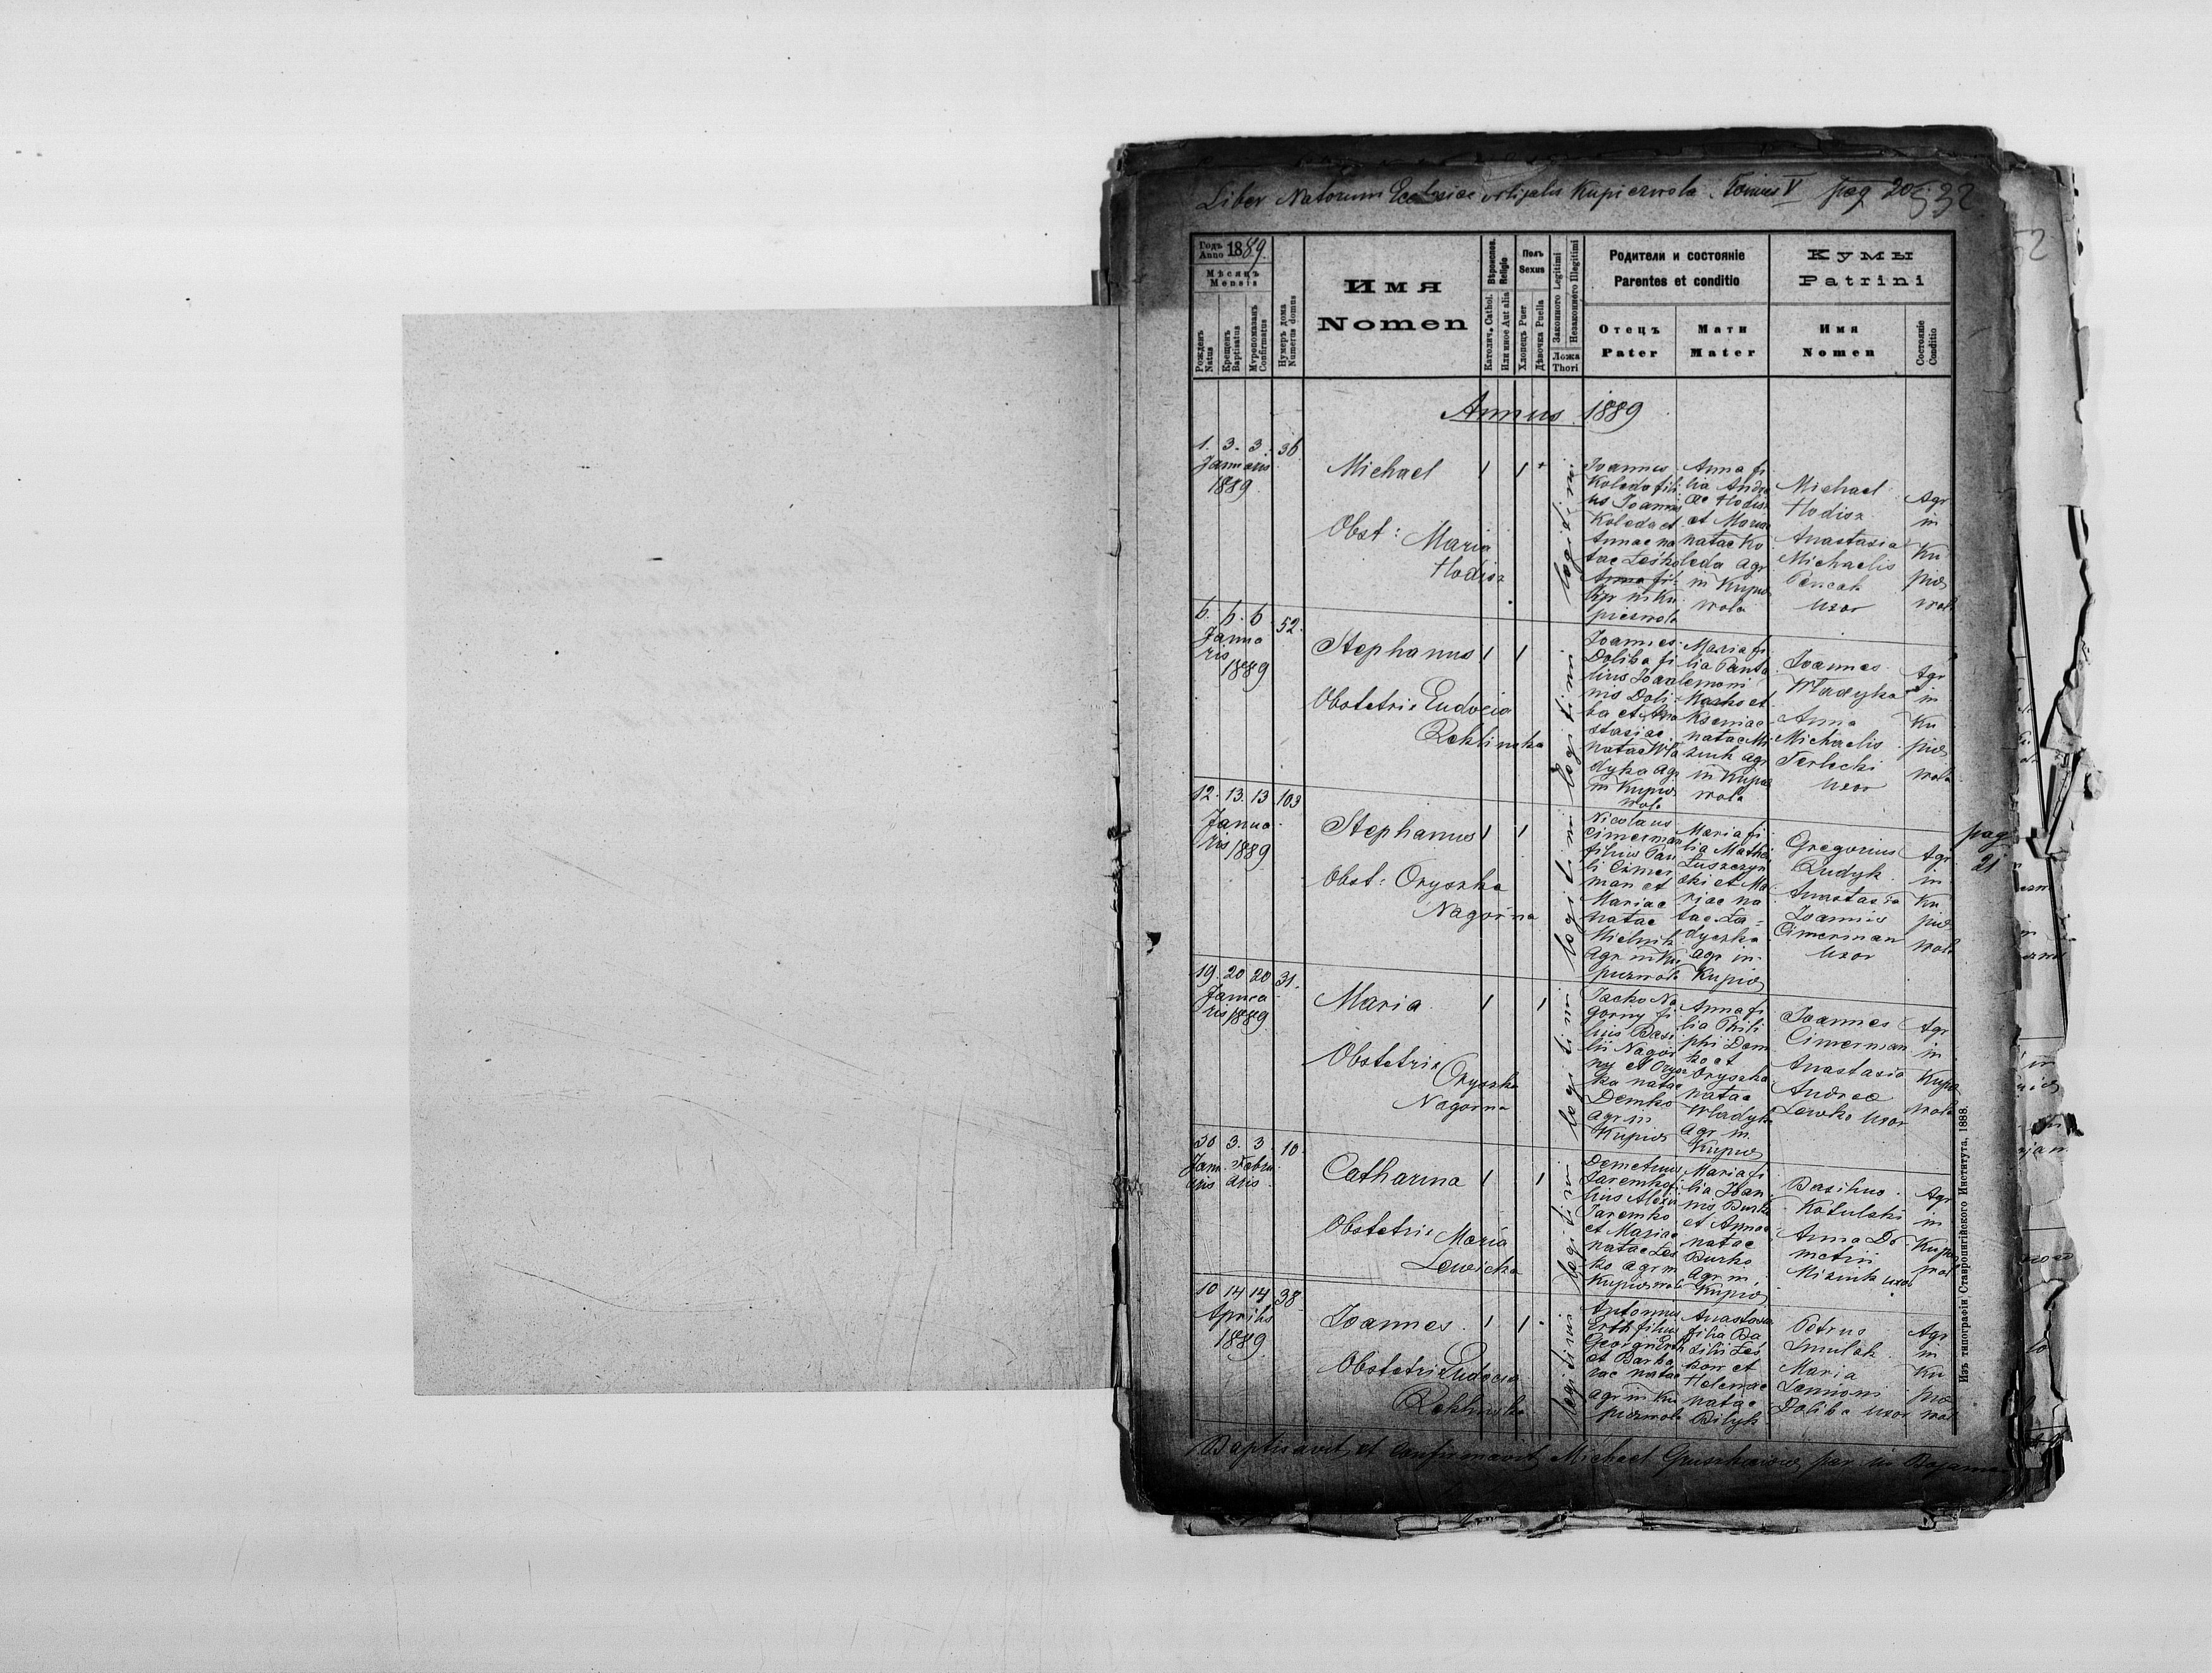 Liber Natorum Ecclesiae Kupiczwola. Tomus V pag 20
532
Годъ Anno 1889.
Мѣсяцъ
Mensis
Рожденъ Natus
Крещенъ Baptisatus
Муропомазанъ Confirmatus
Нумеръ дома Numerus domus
Имя
Nomen
Вѣроисповѣд. Religio
Католич. Cathol.
Или иное Aut alia
Полъ Sexus
Хлопецъ Puer
Дѣвочка Puella
Законного Legitimi
Незаконного Illegitimi
Ложа
Thori
Родители и состоянiе
Parentes et conditio
Отецъ
Pater
Мати
Mater
Кумы
Patrini
Имя
Nomen
Состоянiе Conditio
Annus 1889
1. 3. 3. 36
Januaris
1889
Michael 1 1
Obst: Maria
Hodisz
legitimi
Joannes
Koleda fili
us Joannis
Koleda et
Annae na
tae Leśko
Agr in Ku
piczwola
Anna fi
lia Andre
ae Hodisz
et Mariae
natae Ko
leda agr
in Kupicz
wola
Michael
Hodisz
Anastasia
Michaelis
Pencak
uxor
Agr
in
Ku
picz
wola
6. 6. 6 52.
Janua
ris
1889
Stephanus 1 1
Obstetrix Eudocia
Rektinska
legitimi
Joannes
Doliba fi
lius Joan
nis Doli
ba et Ana
stasiae
natae Wła
dyka agr
in Kupicz
wola
Maria fi
lia Panta
lemoni
Mazko et
Kseniae
natae Mi
ziuk agr
in Kupicz
wola
Joannes
Władyka
Anna
Michaelis
Terlecki
uxor
Agr
in
Ku
picz
wola
12. 13. 13 103
Janua
ris 1889
Stephanus 1 1
Obst: Oryszka
Nagorna
legitimi
Nicolaus
Cimerman
filius Pau
li Cimer
man et
Mariae
natae
Mielnik
agr in Ku
piczwola
Maria fi
lia Mathei
Łuszczyn
ski et Ma
riae na
tae La
dyczka
agr in
Kupicz
Gregorius
Dudyk
Anastasia
Joannis
Cimerman
uxor
Agr
in
Ku
picz
wola
pag
21
19. 20 20 31.
Janua
ris 1889
Maria 1 1
Obstetrix
Oryszka
Nagorna
legitimi
Jacko Na
gorny fi
lius Basi
lii Nagor
ny et Orysz
ka natae
Demko
agr in
Kupicz
Anna fi
lia Phili
phi Dem
ko et
Oryszka
natae
Władyka
agr in
Kupicz
Joannes
Cimerman
Anastasia
Andreae
Lewko uxor
Agr
in
Kupicz
wola
30 3. 3 10.
Janu Febru
aris aris
Catharina 1 1
Obstetrix Maria
Lewicka
legitimi
Demetrius
Jaremko fi
lius Alexii
Jaremko
et Mariae
natae Les
ko agr in
Kupiczwola
Maria fi
lia Joan
nis Burko
et Annae
natae
Burko
agr in
Kupicz
Basilius
Kotulski
Anna De
metrii
Miziuk uxor
Agr
in
Kupicz
wol
10 14 14 38.
Aprilis
1889
Joannes 1 1
Obstetrix Eudocia
Rektinska
legitimi
Antonius
Erth filius
Georgii Erth
et Barba
rae natae
agr in Ku
piczwola
Anastasia
filia Ba
silii Les
et
Helenae
natae
Bilyk
Petrus
Smulak
Maria
Semioni
Doliba uxor
Agr
in
Ku
picz
wol
Baptisavit et Confirmavit Michael
Изъ типографiи Ставропигiйского Института, 1888.